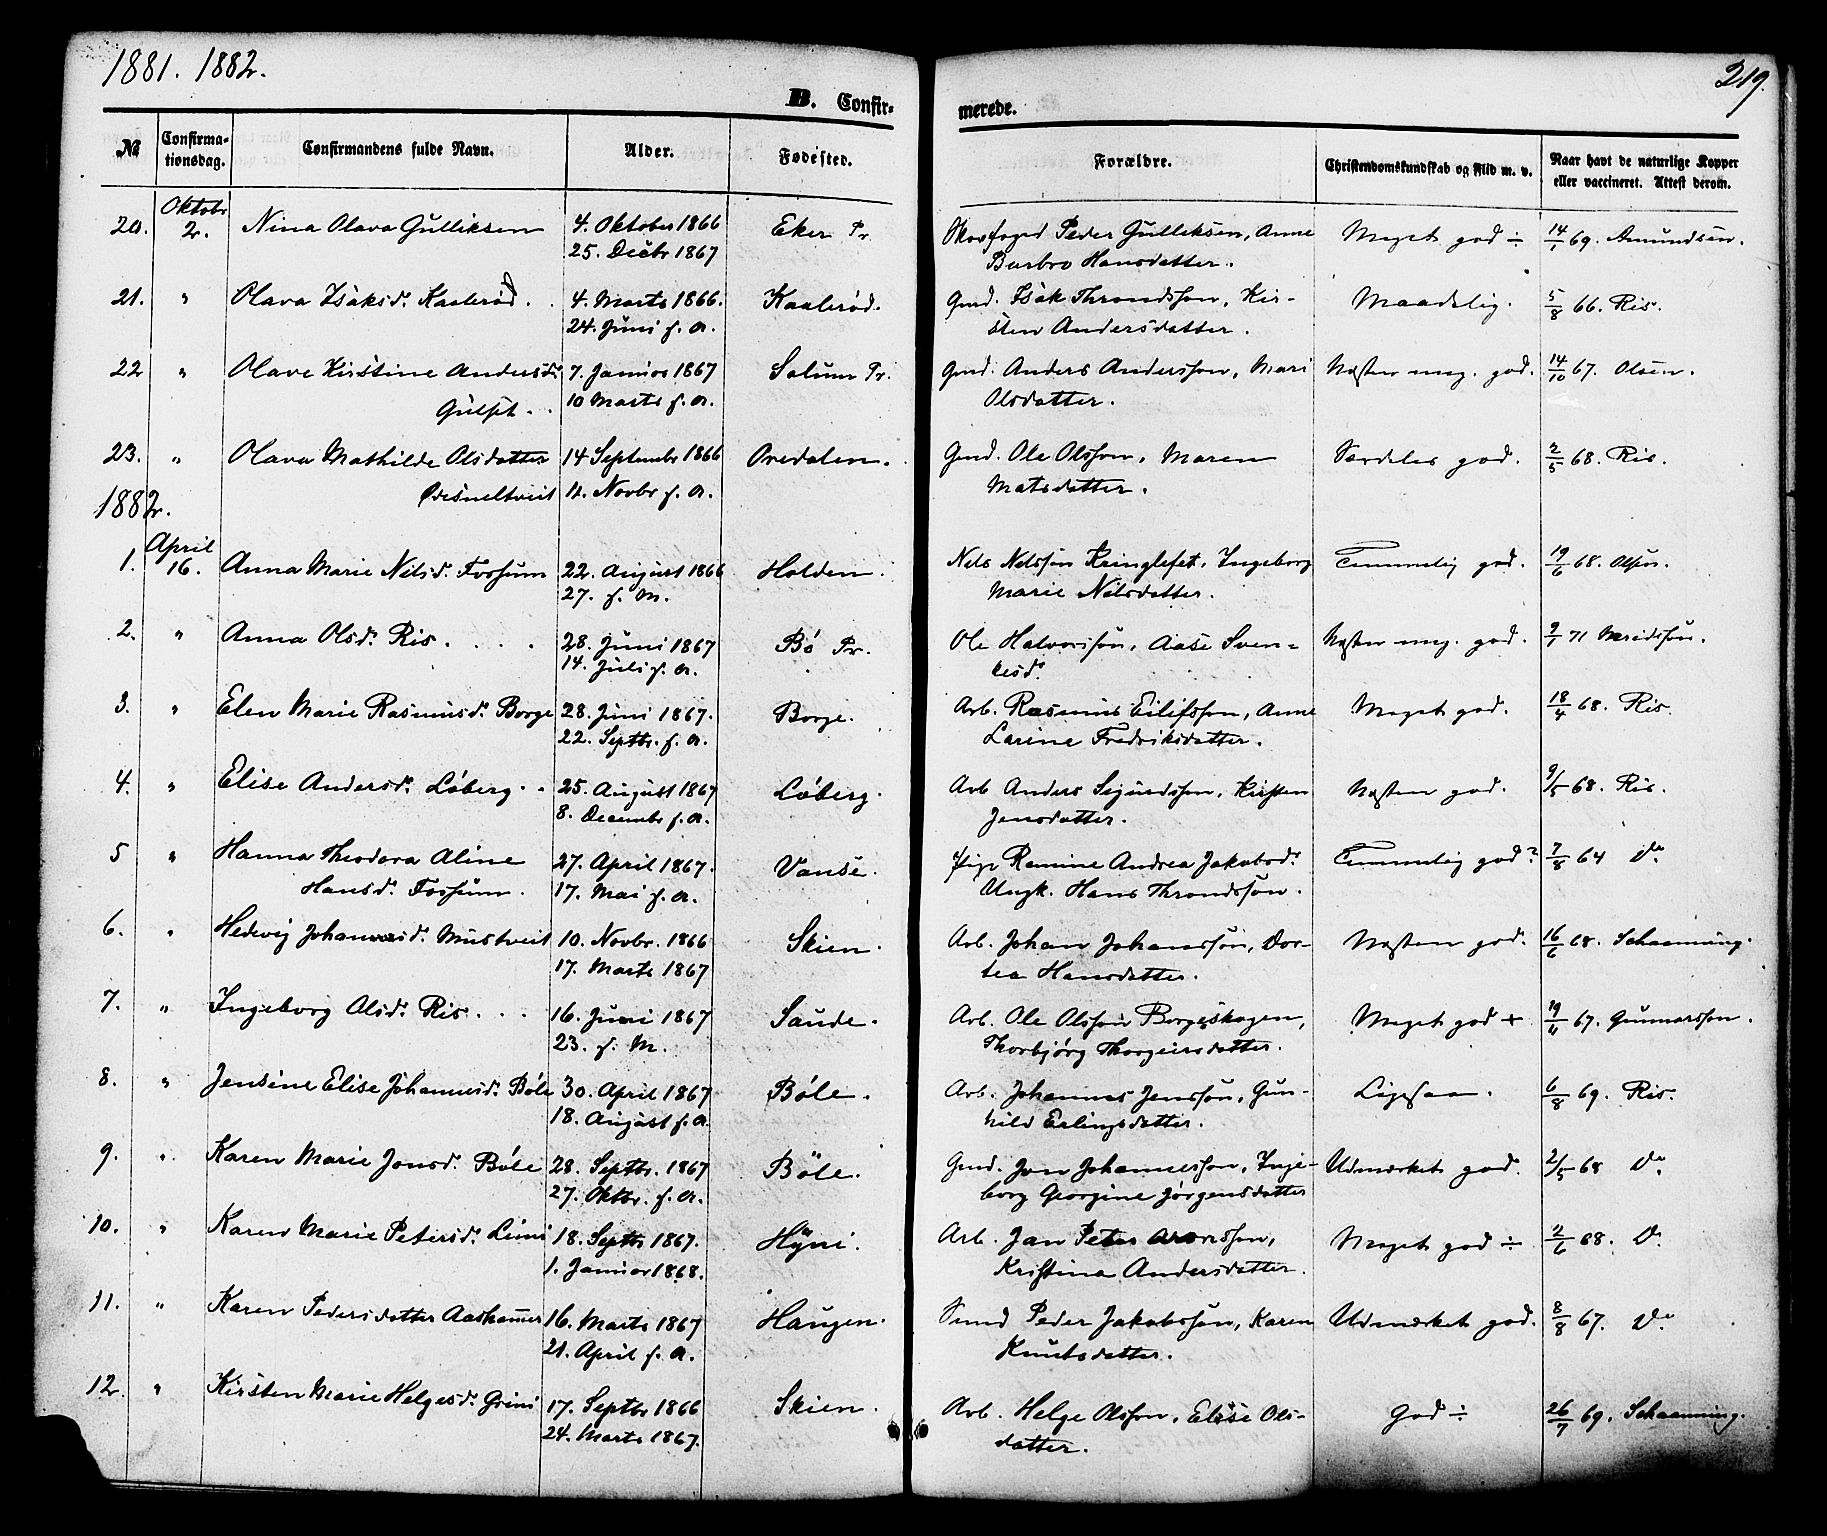 1881. 1882.
219.
B. Confirmerede.
No
Confirmationsdag.
Confirmandens fulde Navn.
Alder.
Fødested.
Forældre.
Christendomskundskab og Flid m. v.
Naar havt de naturlige Kopper eller vaccineret. Attest derom.
20. Oktobr 2. Nina Olava Gulliksen 4. Oktober 1866 Eker Pr. Skovfoged Peder Gulliksen, Anne Meget god ÷ 14/1 69. Amundsen.
25. Decbr 1867 Burbro Hansdatter.
21. " Olava Isaksd. Kaalerød. 4. Marts 1866. Kaalerød. Gmd. Isak Throndsson, Kir- Maadelig. 5/8 66. Ris.
24. Juni s. A. sten Andersdatter.
22 " Olave Kirstine Andersd. 7. Januar 1867 Solum Pr. Gmd. Anders Andersson, Mari Næsten meg. god. 14/10 67. Olsen.
Gulset. 10 Marts s. A. Olsdatter.
23. " Olava Mathilde Olsdatter 14 Septembr 1866 Oredalen. Gmd. Ole Olsson, Maren Særdeles god. 2/5 68. Ris.
11. Novbr s. A. Matsdatter.
1882.
1. April 16. Anna Marie Nilsd. Fossum 22. August 1866 Holden. Nils Nilsson Kringlefet, Ingeborg Temmelig god. 19/6 68. Olsen.
27. s. M. Marie Nilsdatter.
2. " Anna Olsd. Ris. 28. Juni 1867 Bö Pr. Ole Halvorsson, Aase Sven- Næsten meg. god. 9/1 71
14. Juli s. A. kesd.
3. " Elen Marie Rasmusd. Borge 28. Juni 1867. Borge. Arb. Rasmus Eilifsson, Anne Meget god. 18/4 68. Ris.
22. Septbr. s. A. Larine Fredriksdatter.
4. " Elise Andersd. Löberg. 25. August 1867 Löberg. Arb Anders Sigurdsson, Kirsten Næsten god. 9/5 68. Ris.
8. Decembr s. A. Jensdatter.
5 " Hanna Theodora Aline 27. April 1867. Vanse. Pige Ramine Andrea Jakobsd. Temmelig god? 7/8 64 Do
Hansd. Fossum. 17. Mai s. A. Ungk. Hans Throndsson.
6. " Hedevig Johannesd. Mustveit 10. Novbr. 1866 Skien. Arb. Johan Johansson, Dor- Næsten god. 16/6 68. Schaanning.
17. Marts 1867 tea Hansdatter.
7. " Ingeborg Olsd. Ris. 16. Juni 1867 Saude. Arb. Ole Olsson Borgeskogen, Meget god + 19/4 67. Gunnarsson.
23. s. M. Thorbjörg Thorgeirsdatter.
8. " Jensine Elise Johannesd. Böle 30. April 1867 Böle. Arb. Johannes Jensson, Gun- Ligesaa. 6/8 69. Ris.
18. August s. A. hild Erlingsdatter.
9. " Karen Marie Jonsd. Böle 28. Septbr. 1867 Böle. Gmd. Jon Johannesson, Inge- Udmærket god. 2/5 68 Do
27. Oktbr. s. A. borg Georgine Jörgensdatter
10. " Karen Marie Petersd. Limi 18. Septbr 1867. Hÿni. Arb. Jan Peter Aronsson, Meget god ÷ 2/6 68. Do
1. Januar 1868. Kristina Andersdatter.
11. " Karen Pedersdatter Aashamer 16. Marts 1867 Haugen. Smed Peder Jakobsson, Karen Udmærket god. 8/8 67. Do
21. April s. A. Knutsdatter.
12. " Kirsten Marie Helgesd. Grini 17. Septbr 1866 Skien. Arb. Helge Olsson, Elise Ols- God ÷ 26/7 69. Schaanning.
24. Marts 1867. datter.